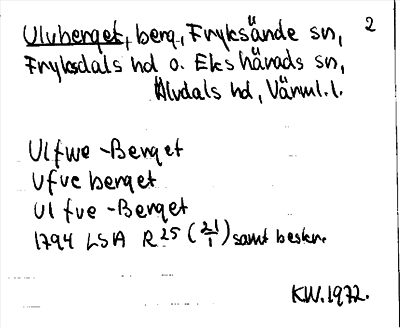 Ulvberget, berg, Fryksände sn, 2
Fryksdals hd o. Ekshärads sn,
Älvdals hd, Värml. l.
Ulfwe-Berget
Ufve berget
Ulfve-Berget
1794 LSA R25 (21/1) samt beskr.
KW. 1972.